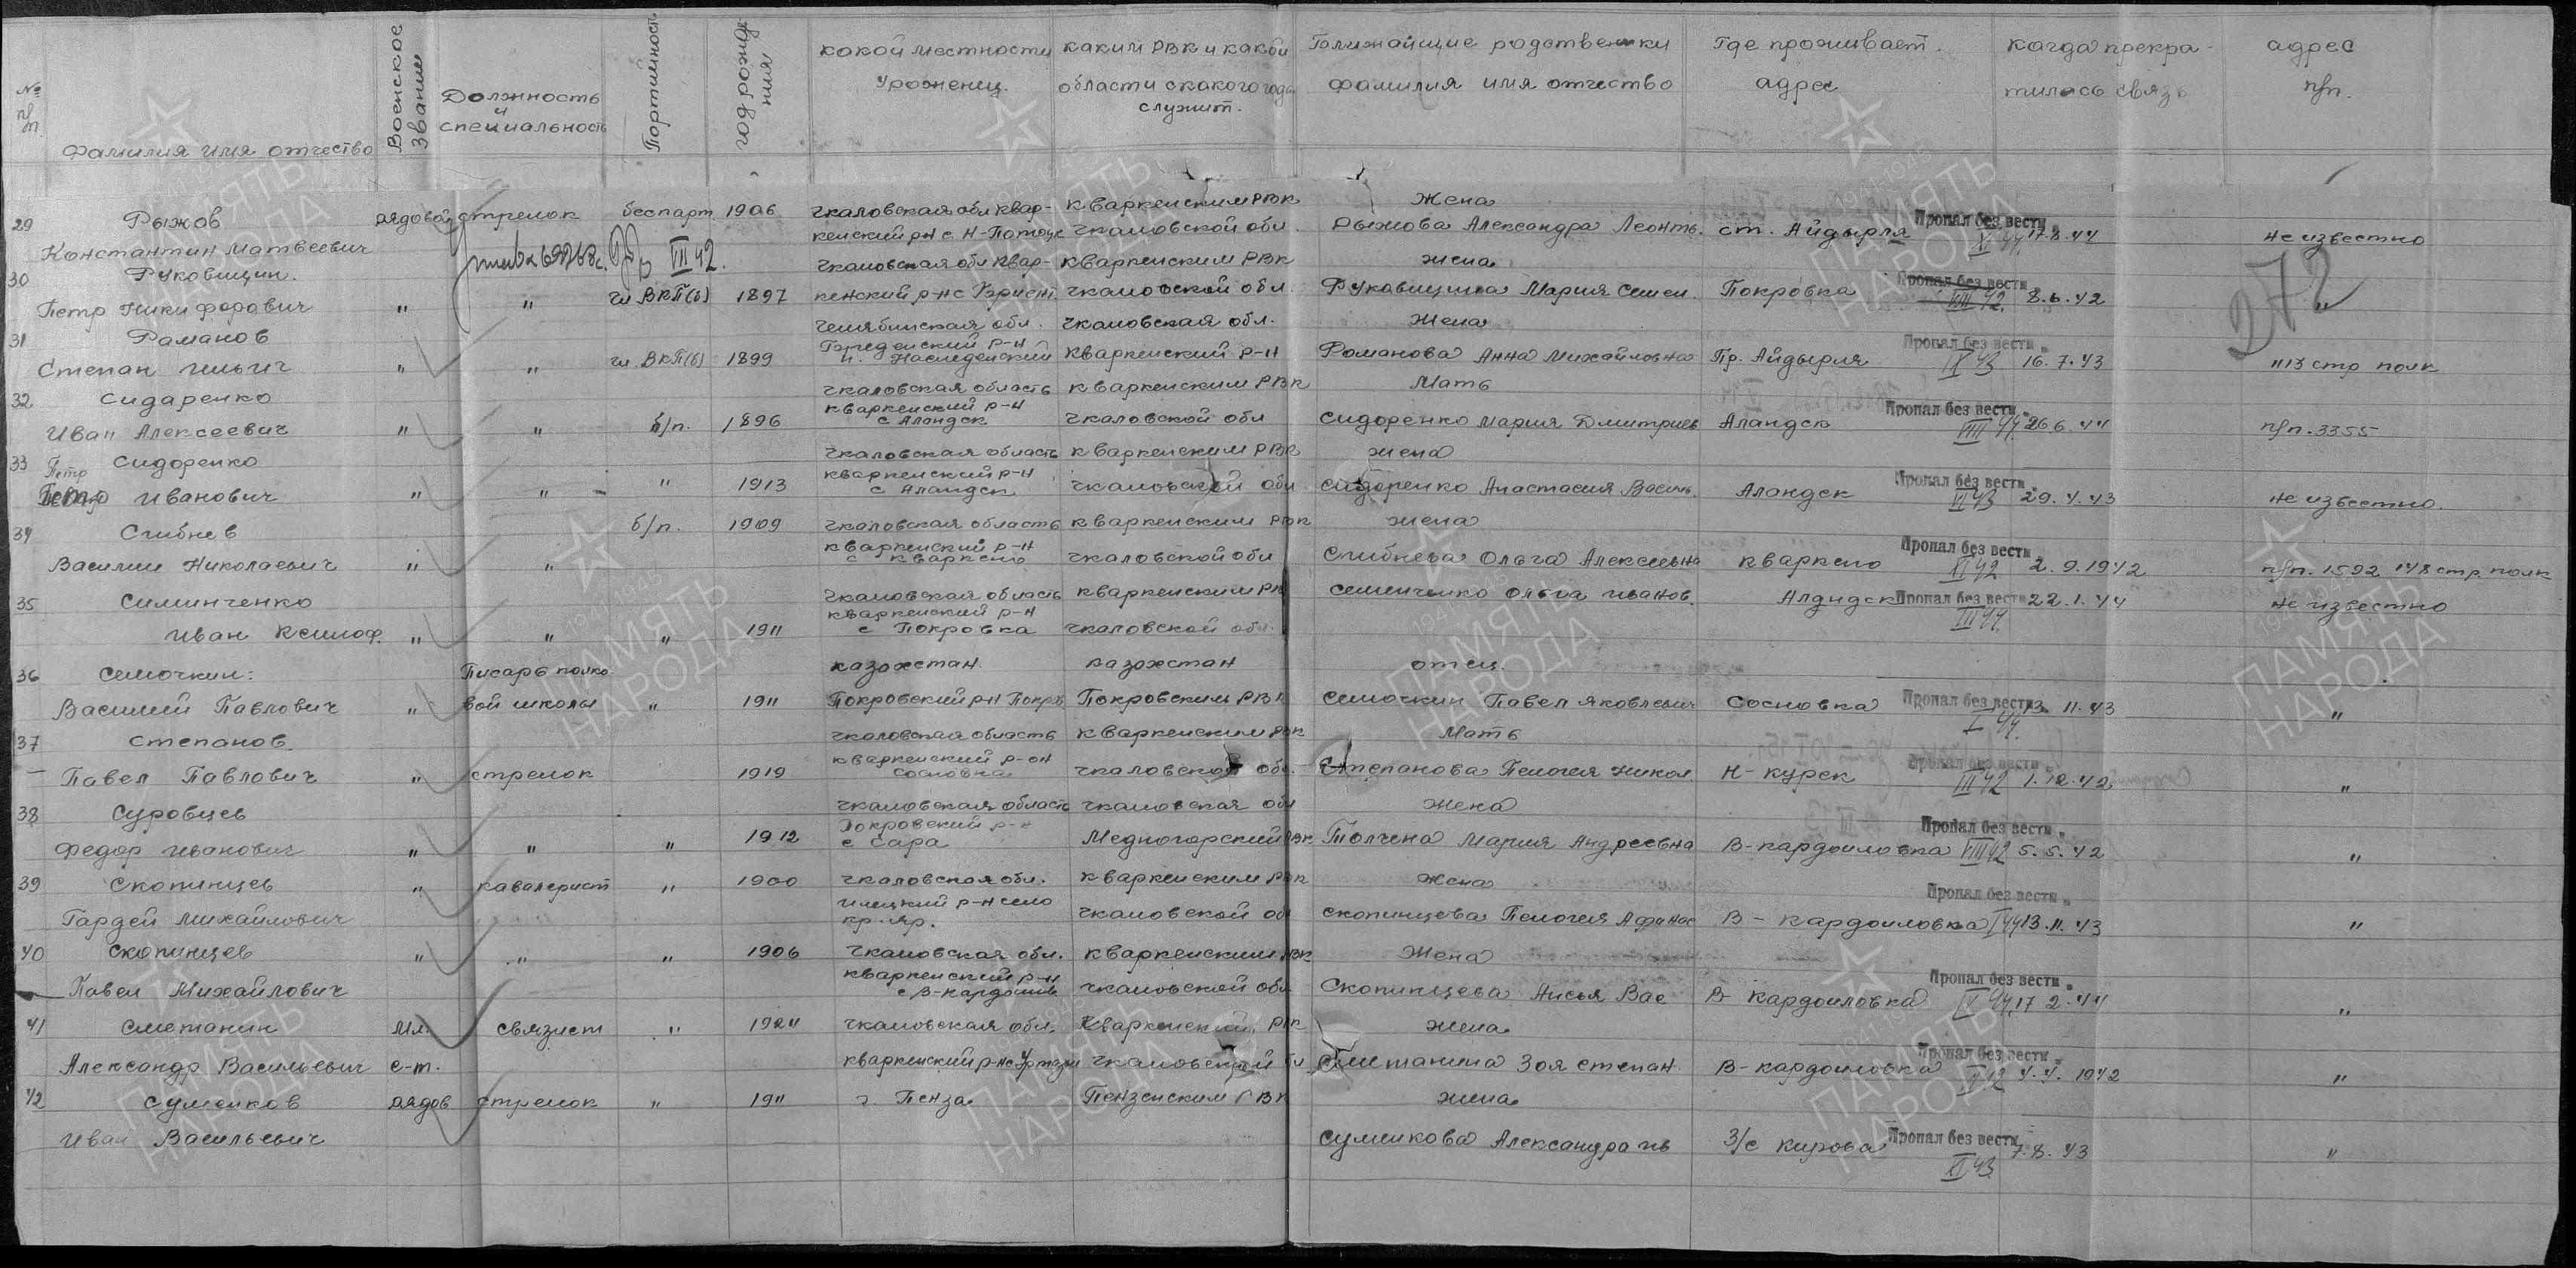 № п/п
Фамилия имя отчество
Военское звание
Должность и специальность
Портийность
год рождения
какой местности уроженец.
каким РВК и какой области с какого года служит.
Ближайщие родственики фамилия имя отчество
Где проживает. адрес
когда прекратилась связь
адрес п/п.
29 Рыжов рядовой стрелок беспарт. 1906 чкаловская обл квар- кваркенским РВК Жена
Константин Матвеевич кенский рн с. Н-Потоцк чкаловской обл. Рыжова Александра Леонть. ст. Айдырля Пропал без вести XI 44 17.8.44 не известно
30 Руковицин. VII 42. чкаловская обл квар- кваркенским РВК жена
Петр Никифорович " " чл ВКП(б) 1897 кенский р-н с чкаловской обл. Руковицина Мария Семен. Покровка Пропал без вести VIII 42. 8.6.42 "
272
31 Раманов челябинская обл. чкаловская обл. Жена
Степан Ильич " " чл. ВКП(б) 1899 р-н п. Наследенский кваркенский р-н Романова Анна Михайловна Пр. Айдырля Пропал без вести IX 43 16.7.43 1113 стр полк
32 Сидаренко чкаловская область кваркенским РВК Мать
Иван Алексеевич " " б/п. 1896 кваркенский р-н с Аландск чкаловской обл Сидоренко Мария Дмитриев Аландск Пропал без вести VIII 44 26.6.44 п/п. 3355
33 Сидоренко чкаловская область кваркенским РВК жена
Петр
Петр Иванович " " " 1913 кваркенский р-н с Аландск чкаловской обл Сидоренко Анастасия Василь. Аландск Пропал без вести VI 43 29.4.43 не известно.
34 Сгибнев б/п. 1909 чкаловская область кваркенским РВК жена
Василий Николаевич " " кваркенский р-н с кваркено чкаловской обл Сгибнева Ольга Алексеевна кваркено Пропал без вести XI 42 2.9.1942 п/п. 1592 148 стр. полк
35 Симинченко чкаловская область кваркенским РВК семенченко Ольга Иванов. Алдндск Пропал без вести 22.1.44 не известно
Иван Ксиноф. " " " 1911 кваркенский р-н с Покровка чкаловской обл. III 44.
36 Семочкин: Писарь полко казохстан казохстан отец.
Василий Павлович " вой школы " 1911 Покровский р-н Покров Покровским РВК Семочкин Павел Яковлевич Сосновка Пропал без вести I 44. 11.43 "
37 Степанов. чкаловская область кваркенским РВК Мать
Павел Павлович " стрелок 1919 кваркенский р-он Сосновка чкаловской обл. Степанова Пелогея Никол. Н-курск Пропал без вести III 42 1.12.42 "
38 Суровцев чкаловская область чкаловская обл жена
Федор Иванович " " " 1912 Покровский р-н с Сара Медногорский РВК Толчена Мария Андреевна В-кардоиловка Пропал без вести VIII 42 5.5.42 "
39 Скопинцев " кавалерист " 1900 чкаловская обл. кваркенским РВК жена
Гардей Михайлович илецкий р-н село кр. яр. чкаловской об Скопинцева Пелогея Афанас В-кардоиловка Пропал без вести I 44 13.11.43 "
40 Скопинцев " " " 1906 чкаловская обл. кваркенским РВК Жена
Павел Михайлович кваркенский р-н с В-кардоилв чкаловской обл Скопинцева Ансья Вас В-кардоиловка Пропал без вести V 44. 17 2.44 "
41 Сметанин мл. связист " 1924 чкаловская обл. Кваркенский РВК жена
Александр Васильевич с-т. кваркенский р-н с Уртазы чкаловской бл Сметанина Зоя степан В-кардоиловка Пропал без вести 4.4.1942 "
42 Суменков рядов стрелок " 1911 г Пенза Пензенским РВК жена
Иван Васильевич Суменкова Александра ив З/с кирова Пропал без вести XI 43. 7.8.43 "